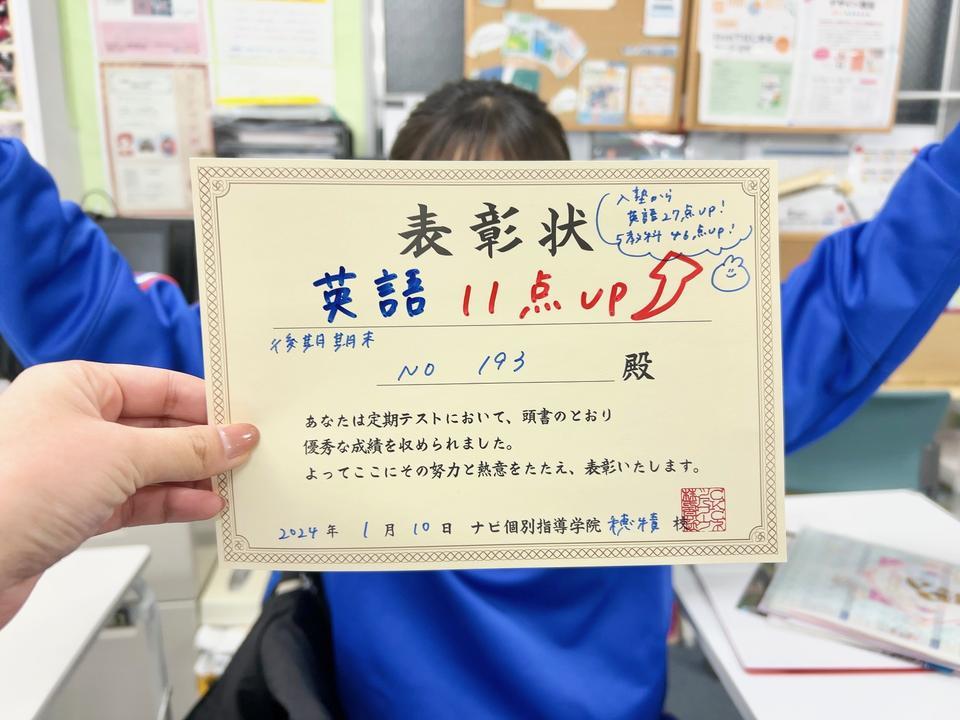 表彰状
入塾から
英語27点UP!
5教科 46点UP!
英語 11点UP
後期期末
NO 193 殿
あなたは定期テストにおいて、頭書のとおり
優秀な成績を収められました。
よってここにその努力と熱意をたたえ、表彰いたします。
2024年 1月10日 ナビ個別指導学院 穂積校